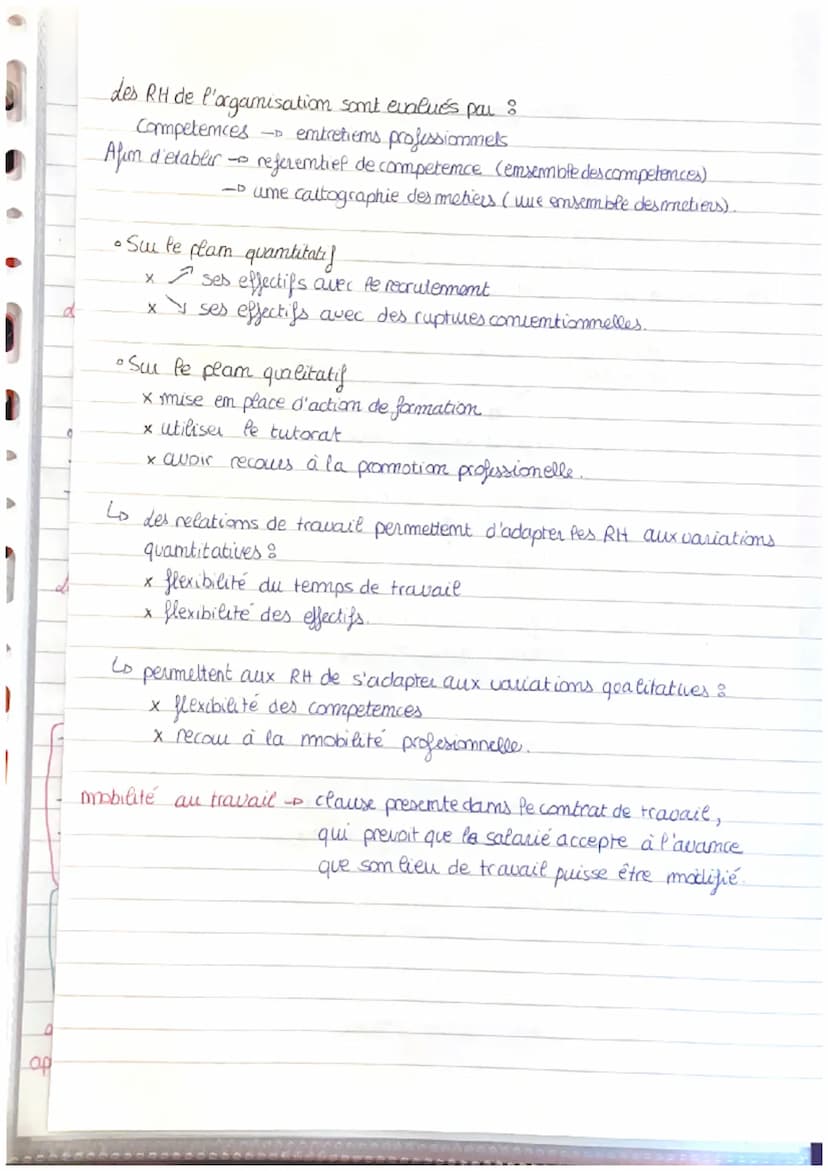 des RH de l'organisation sont evalués par :
Competences → entretiens professionnels
Afin d'etablir → referentiel de competence (ensemble des competences)
→ une cartographie des metiers (une ensemble des metiers).
• Sur le plan quantitatif
x ↗ ses effectifs avec le recrutement
x ↘ ses effectifs avec des ruptures conventionnelles.
• Sur le plan qualitatif
x mise en place d'action de formation
x utiliser le tutorat
x avoir recours à la promotion professionelle.
↳ des relations de travail permettent d'adapter les RH aux variations
quantitatives :
x flexibilité du temps de travail
x flexibilité des effectifs.
↳ permettent aux RH de s'adapter aux variations qualitatives :
x flexibilité des competences
x recour à la mobilité profesionnelle.
mobilité au travail → clause presente dans le contrat de travail,
qui prevoit que le salarié accepte à l'avance
que son lieu de travail puisse être modifié.
d
op